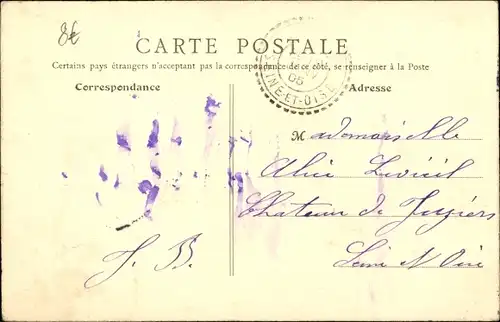 8€
CARTE POSTALE
Certains pays étrangers n'acceptant pas la correspondance de ce côté, se renseigner à la Poste
Correspondance
Adresse
SEINE-ET-OISE
Mademoiselle
Alice
Château de Juziers
Seine et Oise
J. B.